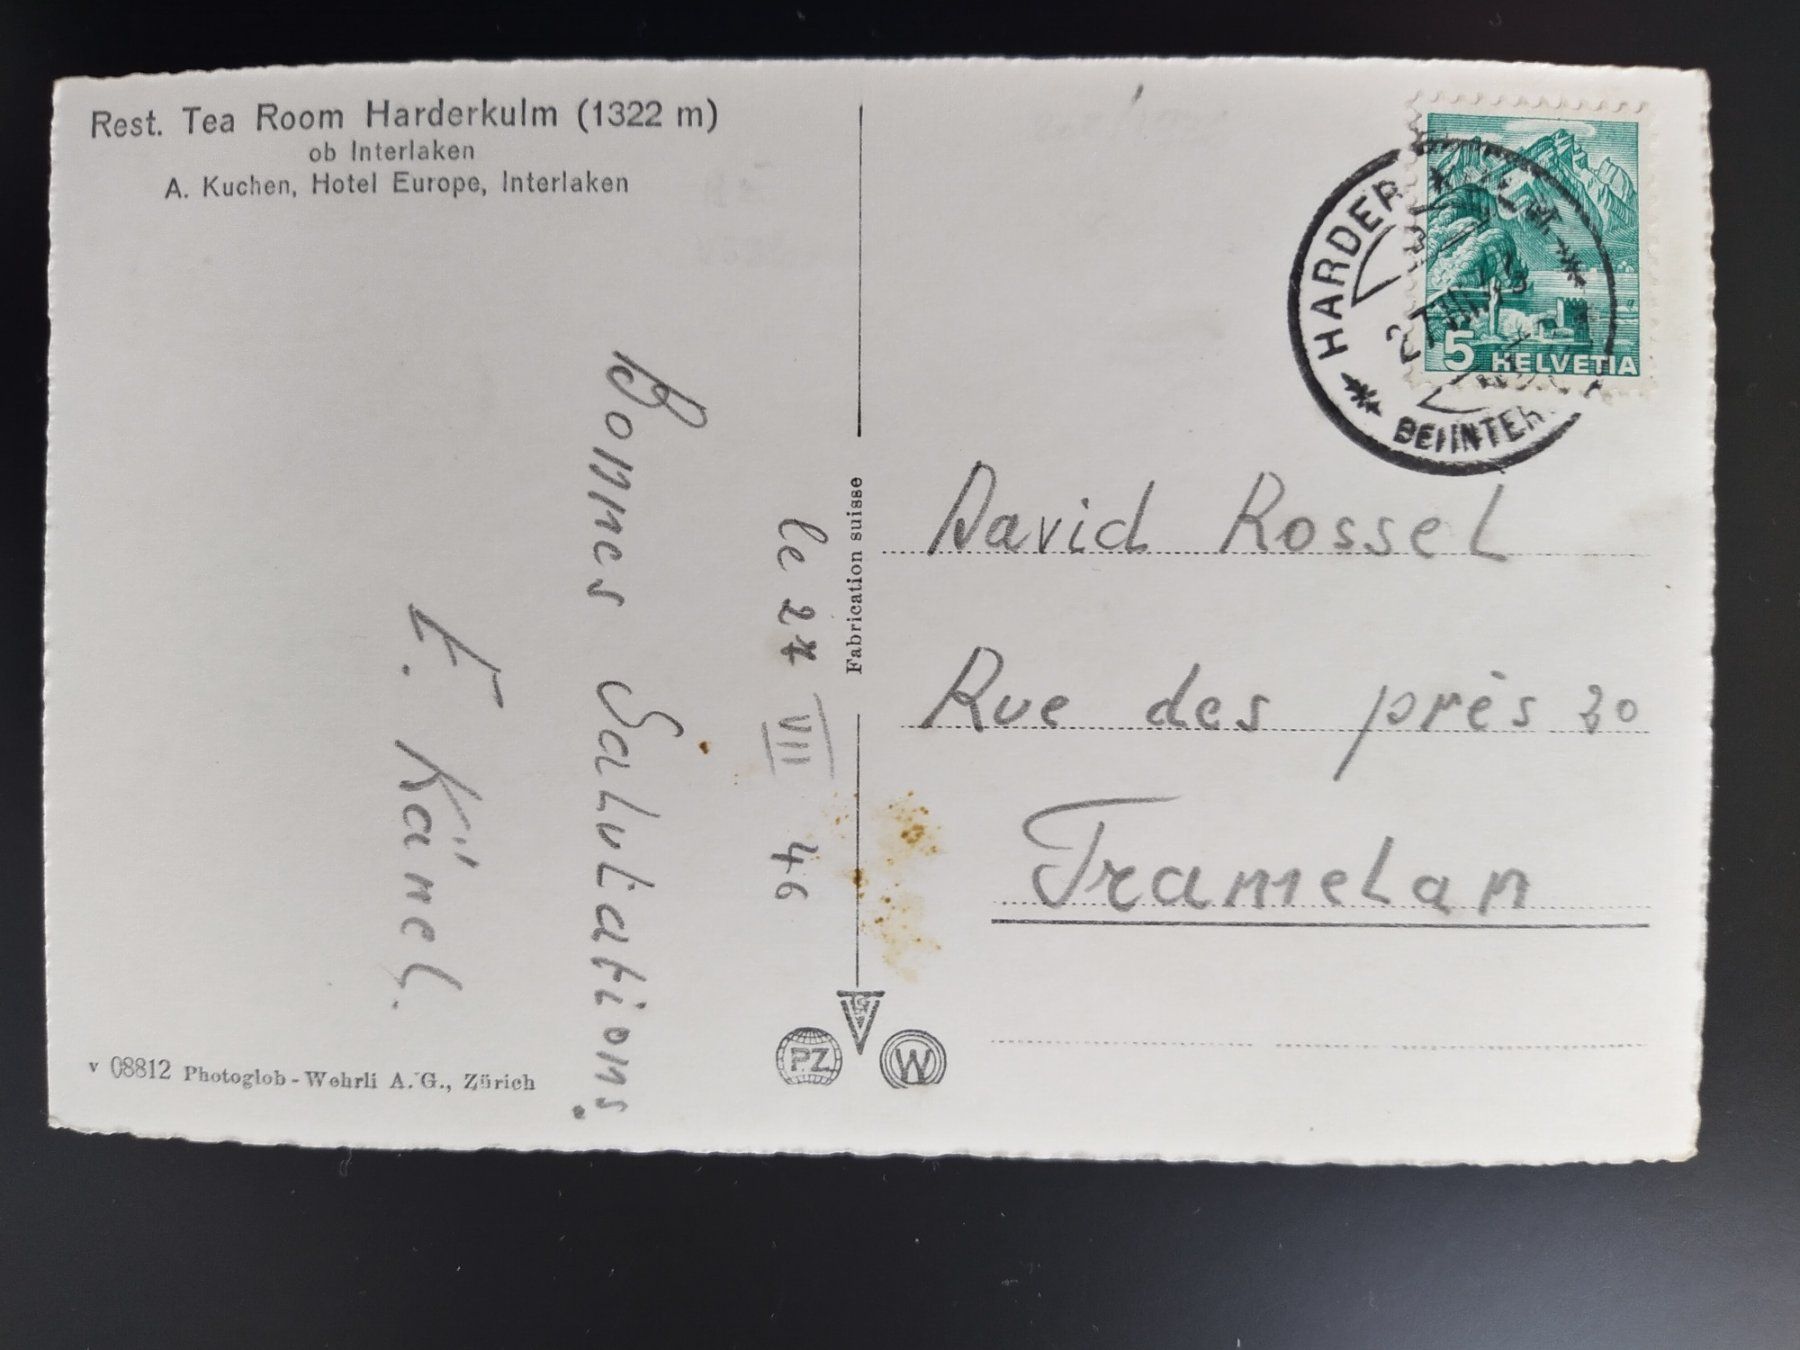 Rest. Tea Room Harderkulm (1322 m)
ob Interlaken
A. Kuchen, Hotel Europe, Interlaken
le 27 VII 46
Bonnes Salutations.
E. Känel.
v 08812 Photoglob-Wehrli A.G., Zürich
Fabrication suisse
PZ
W
HARDER
BEI INTER
5 HELVETIA
David Rossel
Rue des près 20
Tramelan